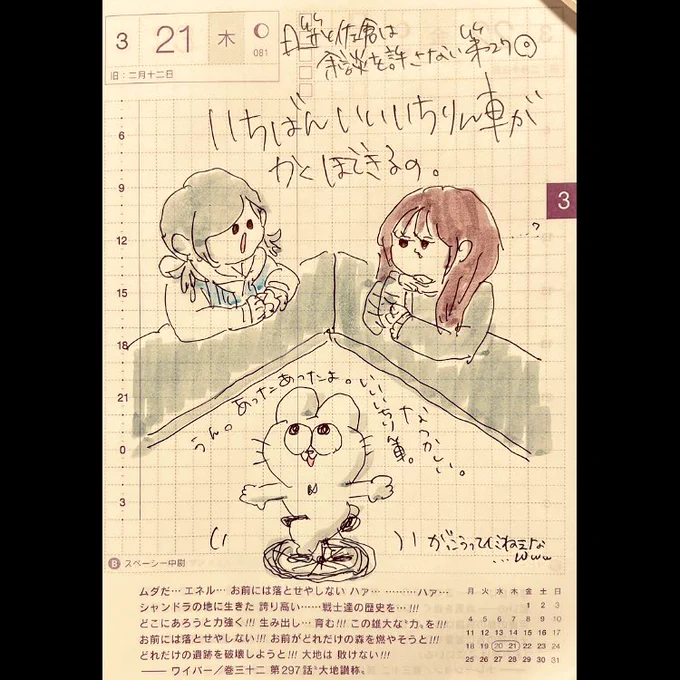 3 21 木 081
旧:二月十二日
日笠と佐倉は
余談を許さない 第27回
いちばんいいいちりん車が
かくほできるの。
3
6
9
12
15
18
21
0
3
…?
うん。あったあったよ。いいいちりん車。
なつかしい。
B スペーシー中尉
ムダだ… エネル… お前には落とせやしない ハァ… ………ハァ…
シャンドラの地に生きた 誇り高い……戦士達の歴史を…!!!
どこにあろうと力強く!!! 生み出し… 育む!!! この雄大な“力”を!!!
お前には落とせやしない!!! お前がどれだけの森を燃やそうと!!!
どれだけの遺跡を破壊しようと!!! 大地は 敗けない!!!
―― ワイパー/巻三十二 第297話“大地讃称”
月 火 水 木 金 土 日
1 2 3
4 5 6 7 8 9 10
11 12 13 14 15 16 17
18 19 20 21 22 23 24
25 26 27 28 29 30 31